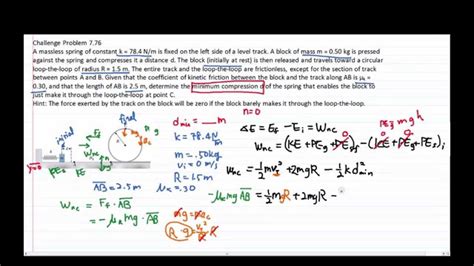 Challenge Problem 7.76
A massless spring of constant k = 78.4 N/m is fixed on the left side of a level track. A block of mass m = 0.50 kg is pressed
against the spring and compresses it a distance d. The block (initially at rest) is then released and travels toward a circular
loop-the-loop of radius R = 1.5 m. The entire track and the loop-the-loop are frictionless, except for the section of track
between points A and B. Given that the coefficient of kinetic friction between the block and the track along AB is μk =
0.30, and that the length of AB is 2.5 m, determine the minimum compression d of the spring that enables the block to
just make it through the loop-the-loop at point C.
Hint: The force exerted by the track on the block will be zero if the block barely makes it through the loop-the-loop.
n=0
PEg mgh
final
initial
dmin = ___ m
k = 78.4 N/m
m = .50kg
vi = 0 m/s
R = 1.5m
μk = .30
y=0
AB = 2.5m
ΔE = Ef - Ei = Wnc
Wnc = (KE + PEg + PEs)f - (KE + PEg + PEs)i
Wnc = ½mvf² + 2mgR - ½kd²min
-μk mg AB = ½mgR + 2mgR -
Wnc = Ff · AB
= -μk mg AB
mg = mac
R · g = vf²/R · R